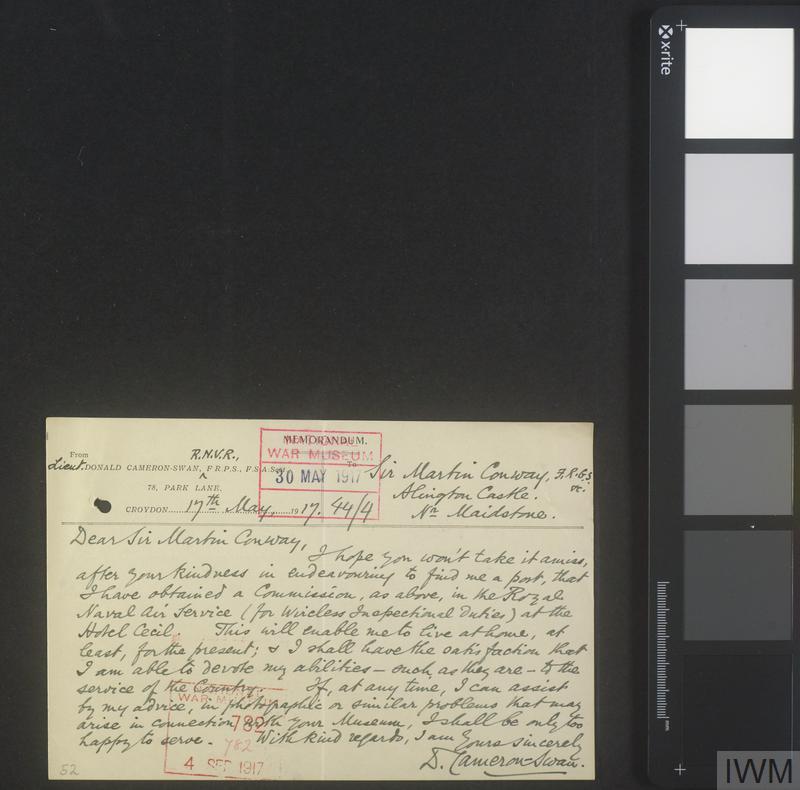 MEMORANDUM.
WAR MUSEUM
30 MAY 1917
44/4
From
R.N.V.R.,
Lieut. DONALD CAMERON-SWAN, F.R.P.S., F.S.A.Scot.
78, PARK LANE,
CROYDON 17th May, 1917.
To
Sir Martin Conway, F.R.G.S.
&c.
Alington Castle.
Nr. Maidstone.
Dear Sir Martin Conway,
I hope you won't take it amiss,
after your kindness in endeavouring to find me a post, that
I have obtained a Commission, as above, in the Royal
Naval Air Service (for Wireless Inspectional Duties) at the
Hotel Cecil. This will enable me to live at home, at
least, for the present; & I shall have the satisfaction that
I am able to devote my abilities – such as they are – to the
service of the Country. If, at any time, I can assist
by my advice, in photographic or similar problems that may
arise in connection with your Museum, I shall be only too
happy to serve. With kind regards, I am Yours sincerely
D. Cameron-Swan.
WAR MUSEUM
782
782
4 SEP 1917
52
x-rite
mm
IWM